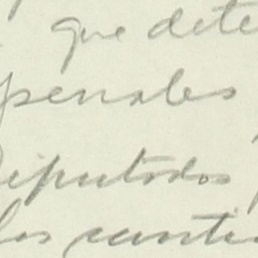 que dete
penales
Diputados
los canti